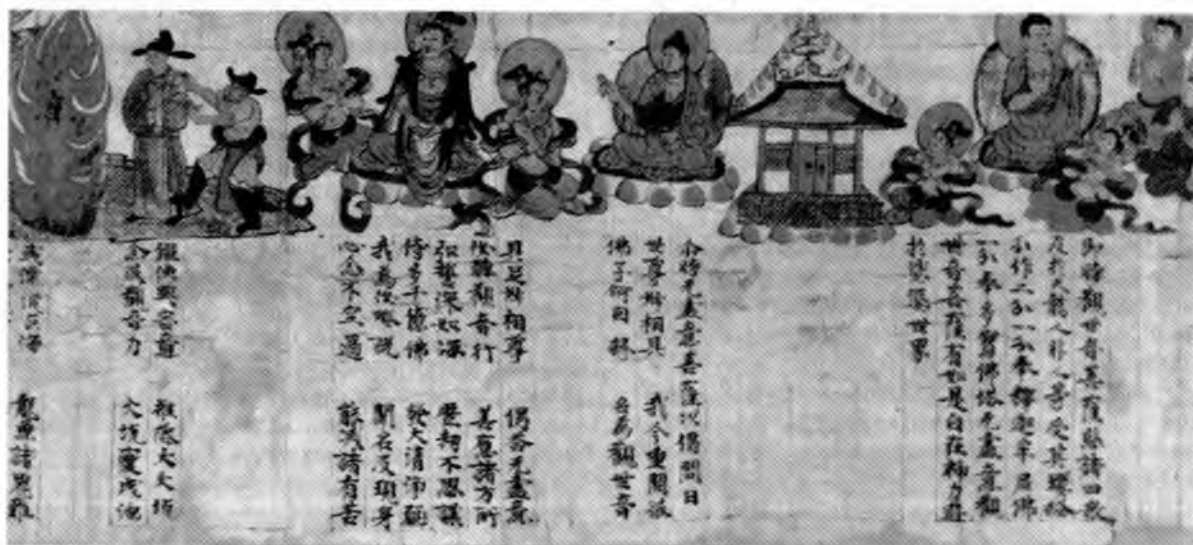 即時觀世音菩薩愍諸四衆
及於天龍人非人等受其瓔珞
分作二分一分奉釋迦牟尼佛
一分奉多寶佛塔无盡意觀
世音菩薩有如是自在神力遊
於娑婆世界
尒時无盡意菩薩以偈問曰
世尊妙相具 我今重問彼
佛子何因緣 名爲觀世音
具足妙相尊 偈荅无盡意
汝聽觀音行 善應諸方所
弘誓深如海 歷劫不思議
侍多千億佛 發大清淨願
我爲汝略說 聞名及見身
心念不空過 能滅諸有苦
假使興害意 推落大火坑
念彼觀音力 火坑變成池
或漂流巨海 龍魚諸鬼難